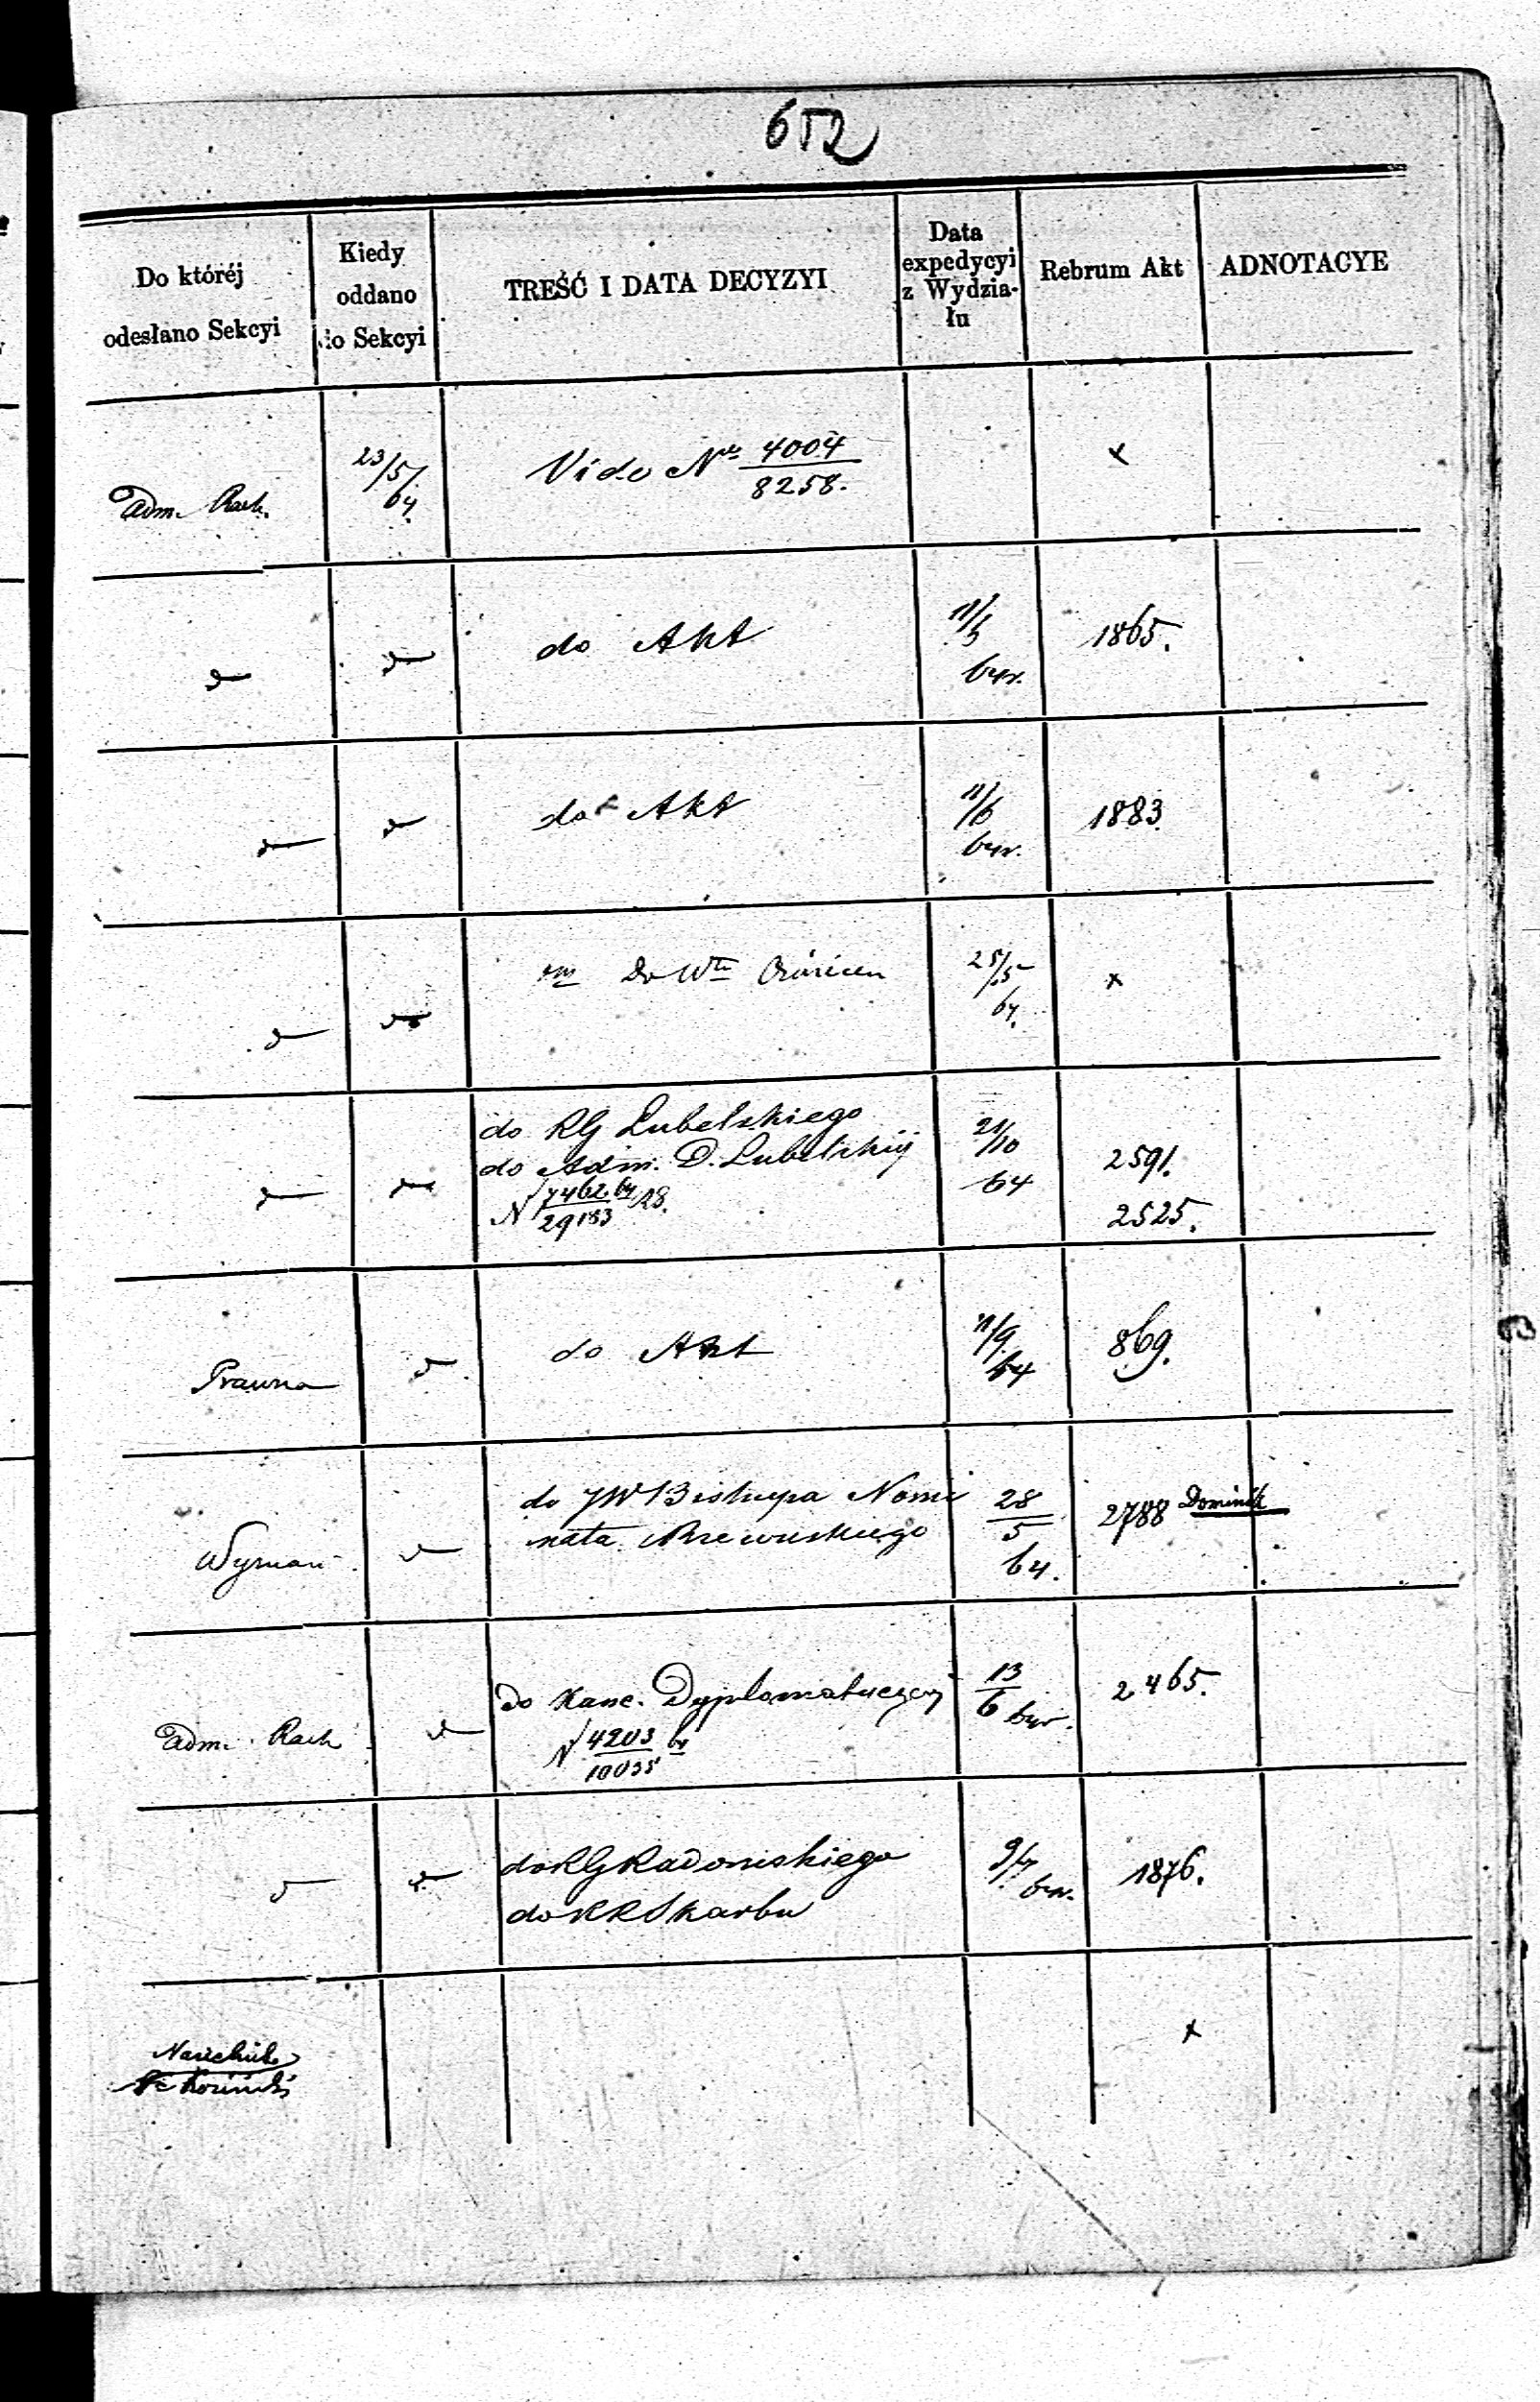 652
Do któréj
odesłano Sekcyi
Kiedy
oddano
do Sekcyi
TREŚĆ I DATA DECYZYI
Data
expedycyi
z Wydzia-
łu
Rebrum Akt
ADNOTACYE
Adm. Rach.
23/5/
64.
Vide Nr 4004
8258.
x
do Akt
11/5
64 r.
1865.
do Akt
11/6
64 r.
1883.
Do
25/5
64.
x
do RG Lubelskiego
do Adm. D. Lubelskiéj
N 7462 64
29183
21/10
64
2591.
2525.
Prawna
do Akt
11/9
64
869.
Wyznań
do JW Biskupa Nomi
nata Rzewuskiego
28
5
64.
2788 Dominik
Adm. Rach
do Kanc. Dyplomatycznej
N 4203 64
10035
13
6 64 r.
2465.
do RG Radomskiego
do KR Skarbu
9/7
64 r.
1876.
Naczelnik
x